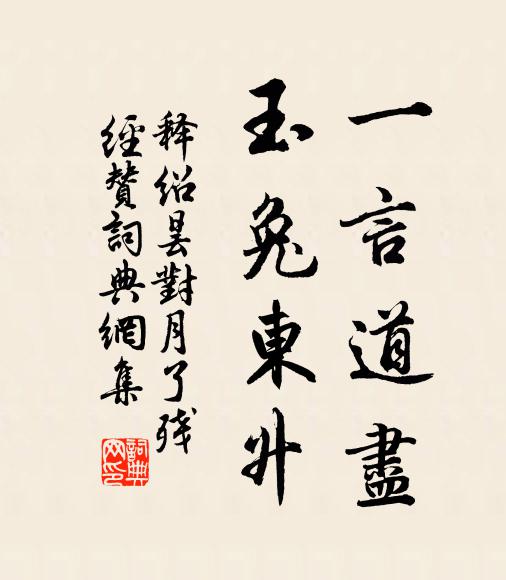 一言道盡
玉兔東升
釋紹曇對月了残
經贊詞典網集
詞典网印